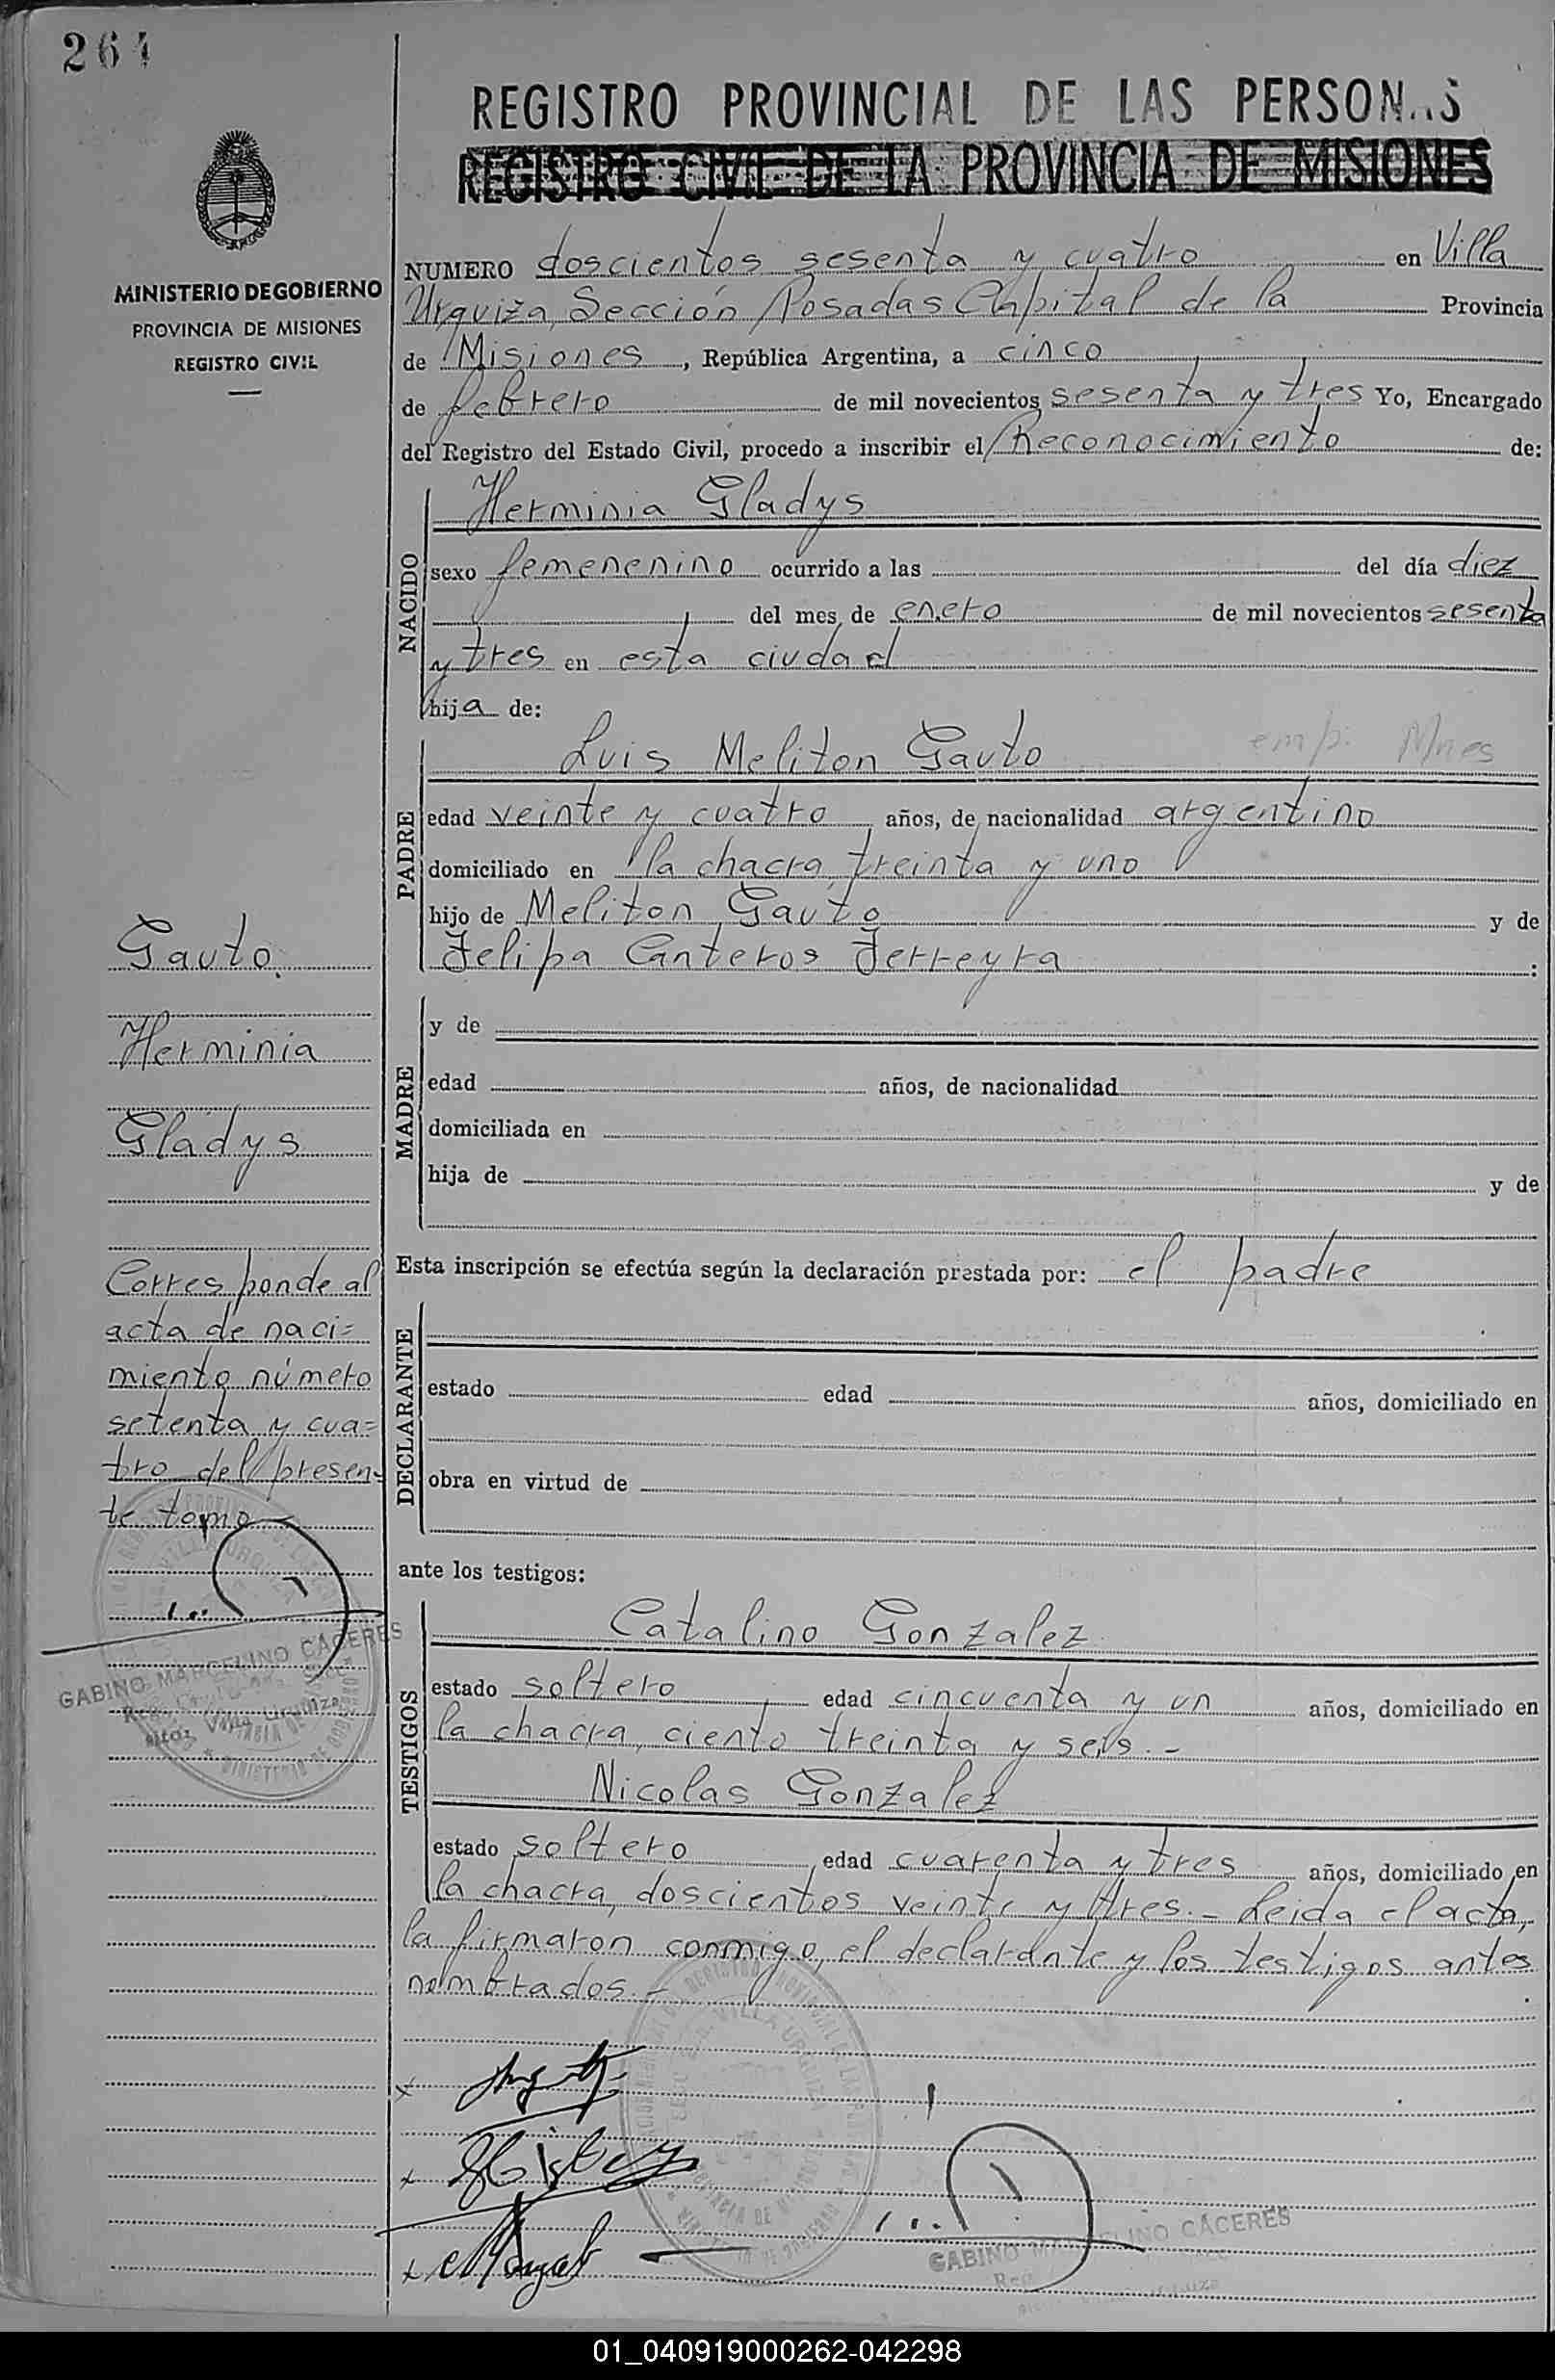 264
REGISTRO PROVINCIAL DE LAS PERSONAS
REGISTRO CIVIL DE LA PROVINCIA DE MISIONES
MINISTERIO DE GOBIERNO
PROVINCIA DE MISIONES
REGISTRO CIVIL
NUMERO doscientos sesenta y cuatro en Villa
Urquiza, Sección Posadas Capital de la Provincia
de Misiones, República Argentina, a cinco
de febrero de mil novecientos sesenta y tres Yo, Encargado
del Registro del Estado Civil, procedo a inscribir el Reconocimiento de:
NACIDO
Herminia Gladys
sexo femenenino ocurrido a las del día diez
del mes de enero de mil novecientos sesenta
y tres en esta ciudad
hija de:
PADRE
Luis Meliton Gauto emp. Mnes
edad veinte y cuatro años, de nacionalidad argentino
domiciliado en la chacra, treinta y uno
hijo de Meliton Gauto y de
Felipa Canteros Ferreyra :
MADRE
y de
edad años, de nacionalidad
domiciliada en
hija de y de
Esta inscripción se efectúa según la declaración prestada por: el padre
DECLARANTE
estado edad años, domiciliado en
obra en virtud de
ante los testigos:
TESTIGOS
Catalino Gonzalez
estado soltero edad cincuenta y un años, domiciliado en
la chacra, ciento treinta y seis.-
Nicolas Gonzalez
estado soltero edad cuarenta y tres años, domiciliado en
la chacra, doscientos veinte y tres.- Leida el acta,
la firmaron conmigo, el declarante y los testigos antes
nombrados.-
GABINO MARCELINO CÁCERES
Gauto
Herminia
Gladys
Corresponde al
acta de naci=
miento número
setenta y cua=
tro del presen=
te tomo
GABINO MARCELINO CÁCERES
Villa Urquiza
01_040919000262-042298